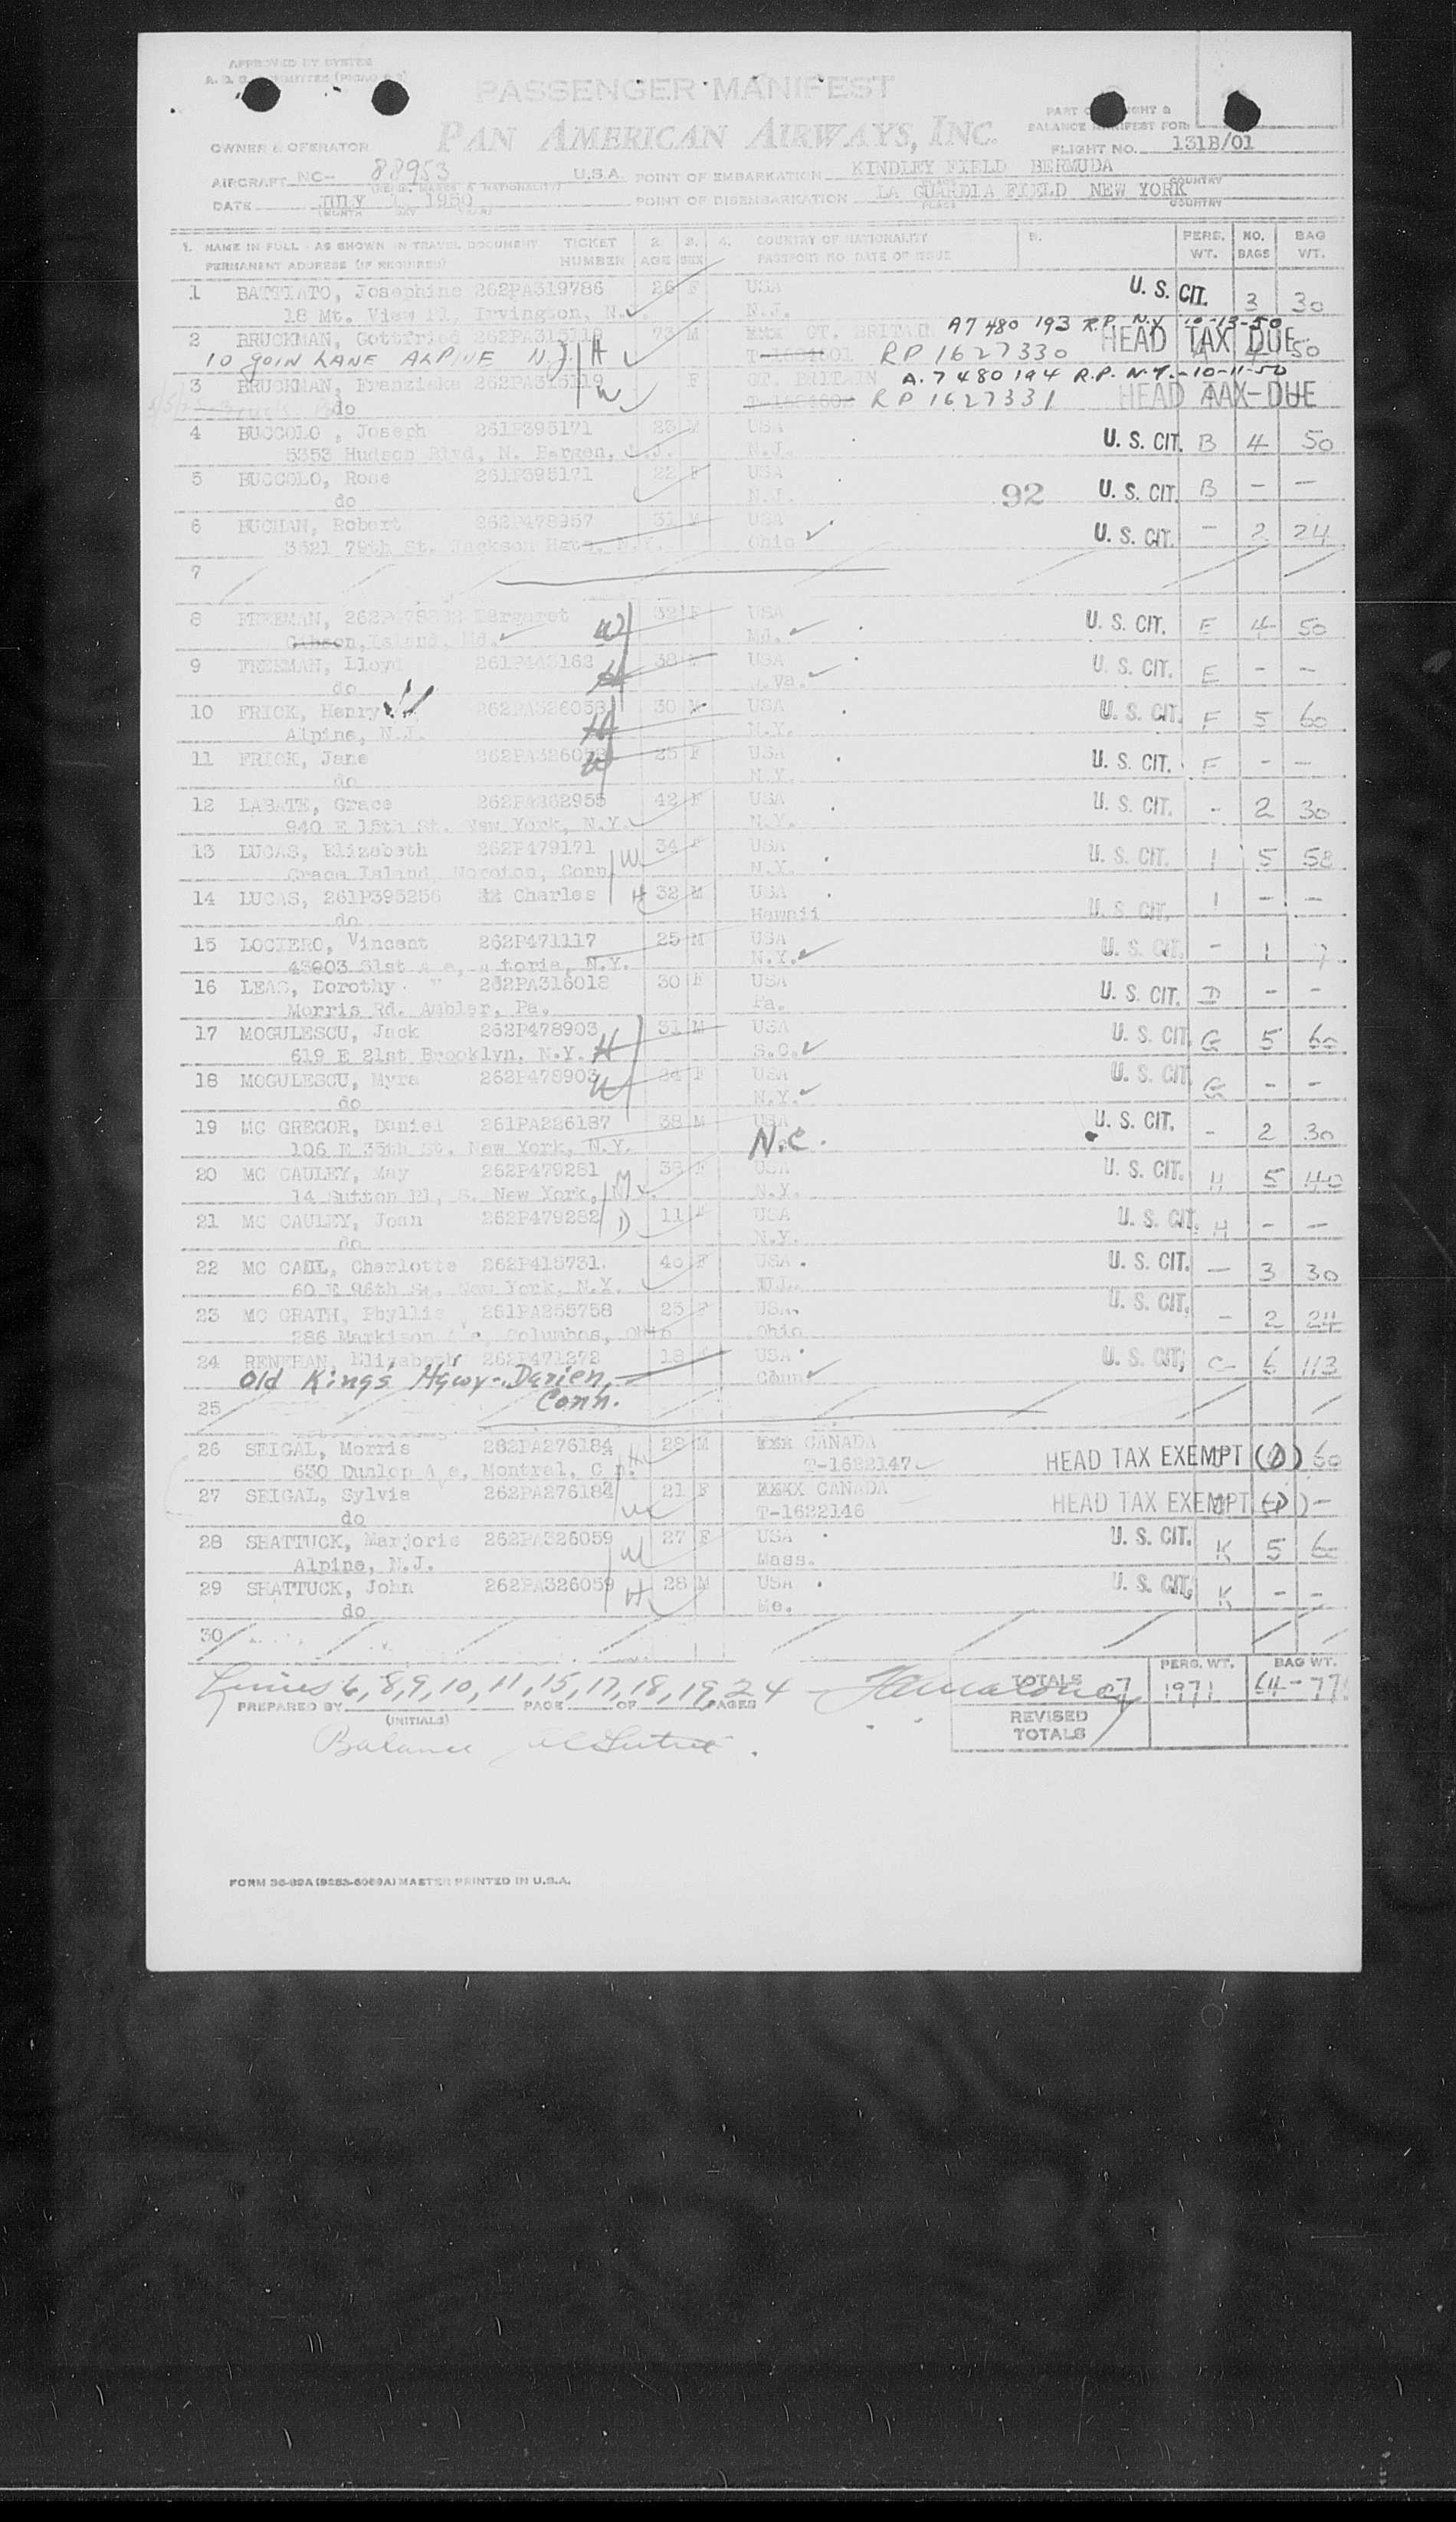 APPROVED BY SYSTEM
PASSENGER MANIFEST
PAN AMERICAN AIRWAYS, INC.
PART OF WEIGHT &
BALANCE MANIFEST FOR:
OWNER & OPERATOR
FLIGHT NO. 131B/01
AIRCRAFT NC-- 88953 U.S.A. POINT OF EMBARKATION KINDLEY FIELD BERMUDA
DATE JULY 1950 POINT OF DISEMBARKATION LA GUARDIA FIELD NEW YORK
(MONTH DAY YEAR) PLACE COUNTRY
1. NAME IN FULL - AS SHOWN IN TRAVEL DOCUMENT TICKET 2. 3. 4. COUNTRY OF NATIONALITY 5. PERS. NO. BAG
PERMANENT ADDRESS (IF REQUIRED) NUMBER AGE SEX PASSPORT NO. DATE OF ISSUE WT. BAGS WT.
1 BATTIATO, Josephine 262PA319786 26 F USA U. S. CIT. 3 30
18 Mt. View Pl, Irvington, N.J. N.J.
2 BRUCKMAN, Gottfried 262PA315118 73 M GT. BRITAIN A7 480 193 R.P. N.Y 10-13-50 HEAD TAX DUE
10 JOIN LANE ALPINE N J H RP 1627330 A 4 50
3 BRUCKMAN, Franziska 262PA315119 F GT. BRITAIN A. 7 480 194 R.P. N.Y. -10-11-50
do W RP 1627331 HEAD TAX DUE A - -
4 BUCCOLO , Joseph 261P395171 23 M USA U. S. CIT. B 4 50
5353 Hudson Blvd, N. Bergen, N.J. N.J.
5 BUCCOLO, Rose 261P395171 22 F USA 92 U. S. CIT. B - -
do N.J.
6 BUCHAN, Robert 262P478957 31 M USA U. S. CIT. - 2 24
3521 79th St. Jackson Hgts, N.Y. Ohio
7
8 FREEMAN, Margaret W 32 F USA U. S. CIT. E 4 50
Gibson Island, Md. Md.
9 FREEMAN, Lloyd H 38 USA U. S. CIT. E - -
do W.Va.
10 FRICK, Henry 262PA326058 H 30 M USA U. S. CIT. F 5 60
Alpine, N.J. N.Y.
11 FRICK, Jane 262PA326058 W 25 F USA U. S. CIT. F - -
do N.Y.
12 LABATE, Grace 42 F USA U. S. CIT. - 2 30
940 E 15th St. New York, N.Y. N.Y.
13 LUCAS, Elizabeth 262P479171 W 34 F USA U. S. CIT. I 5 58
Grace Island, Noroton, Conn. N.Y.
14 LUCAS, 261P395256 Charles H 32 M USA U. S. CIT. I - -
do Hawaii
15 LOCIERO, Vincent 262P471117 25 M USA U. S. CIT. - 1 7
31st Ave, Astoria, N.Y. N.Y.
16 LEAS, Dorothy 262PA316018 30 F USA U. S. CIT. D - -
Morris Rd. Ambler, Pa. Pa.
17 MOGULESCU, Jack 262P478903 31 M USA U. S. CIT. G 5 60
619 E 21st Brooklyn, N.Y. H S.C.
18 MOGULESCU, Myra 262P478903 W 24 F USA U. S. CIT. G - -
do N.Y.
19 MC GREGOR, Daniel 261PA226187 38 M USA U. S. CIT. - 2 30
106 E 35th St. New York, N.Y. N.C.
20 MC CAULEY, May 262P479281 M 36 F USA U. S. CIT. H 5 40
14 Sutton Pl, S. New York, N.Y. N.Y.
21 MC CAULEY, Joan 262P479282 D 11 F USA U. S. CIT. H - -
do N.Y.
22 MC CALL, Charlotte 262P415731 F USA U. S. CIT. - 3 30
60 E 96th St. New York, N.Y. N.J.
23 MC GRATH, Phyllis 261PA255758 25 F USA U. S. CIT. - 2 24
286 Markison Ave, Columbus, Ohio Ohio
24 RENEHAN, Elizabeth 262P471272 18 F USA U. S. CIT. C 6 113
Old Kings Hgwy - Darien, Conn. Conn
25
26 SEIGAL, Morris 262PA276184 H 28 M CANADA HEAD TAX EXEMPT (D) 60
630 Dunlop Ave, Montral, Can. T-1622147
27 SEIGAL, Sylvia 262PA276184 W 21 F CANADA HEAD TAX EXEMPT (D) -
do T-1622146
28 SHATTUCK, Marjorie 262PA326059 W 27 F USA U. S. CIT. K 5 60
Alpine, N.J. Mass.
29 SHATTUCK, John 262PA326059 H 28 M USA U. S. CIT. K - -
do Me.
30
Lines 6, 8, 9, 10, 11, 15, 17, 18, 19, 24 -
TOTALS 27 PERS. WT. 1971 BAG WT. 64 - 77
PREPARED BY (INITIALS) PAGE OF PAGES
REVISED TOTALS
Balance
FORM 36-89A (9283-6069A) MASTER PRINTED IN U.S.A.